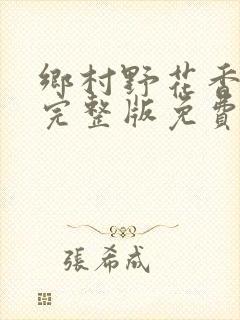 鄉村野花香
完整版免費
張希成